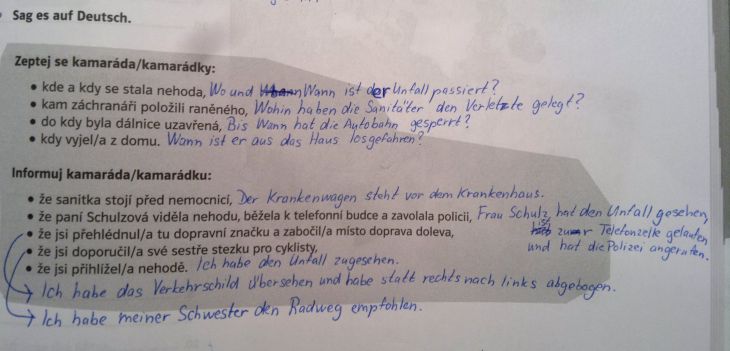 Sag es auf Deutsch.
Zeptej se kamaráda/kamarádky:
• kde a kdy se stala nehoda, Wo und Wann ist der Unfall passiert?
• kam záchranáři položili raněného, Wohin haben die Sanitäter den Verletzte gelegt?
• do kdy byla dálnice uzavřená, Bis Wann hat die Autobahn gesperrt?
• kdy vyjel/a z domu. Wann ist er aus das Haus losgefahren?
Informuj kamaráda/kamarádku:
• že sanitka stojí před nemocnicí, Der Krankenwagen steht vor dem Krankenhaus.
• že paní Schulzová viděla nehodu, běžela k telefonní budce a zavolala policii, Frau Schulz hat den Unfall gesehen,
• že jsi přehlédnul/a tu dopravní značku a zabočil/a místo doprava doleva, ist zur Telefonzelle gelaufen
• že jsi doporučil/a své sestře stezku pro cyklisty, und hat die Polizei angerufen.
• že jsi přihlížel/a nehodě. Ich habe den Unfall zugesehen.
Ich habe das Verkehrschild übersehen und habe statt rechts nach links abgebogen.
Ich habe meiner Schwester den Radweg empfohlen.